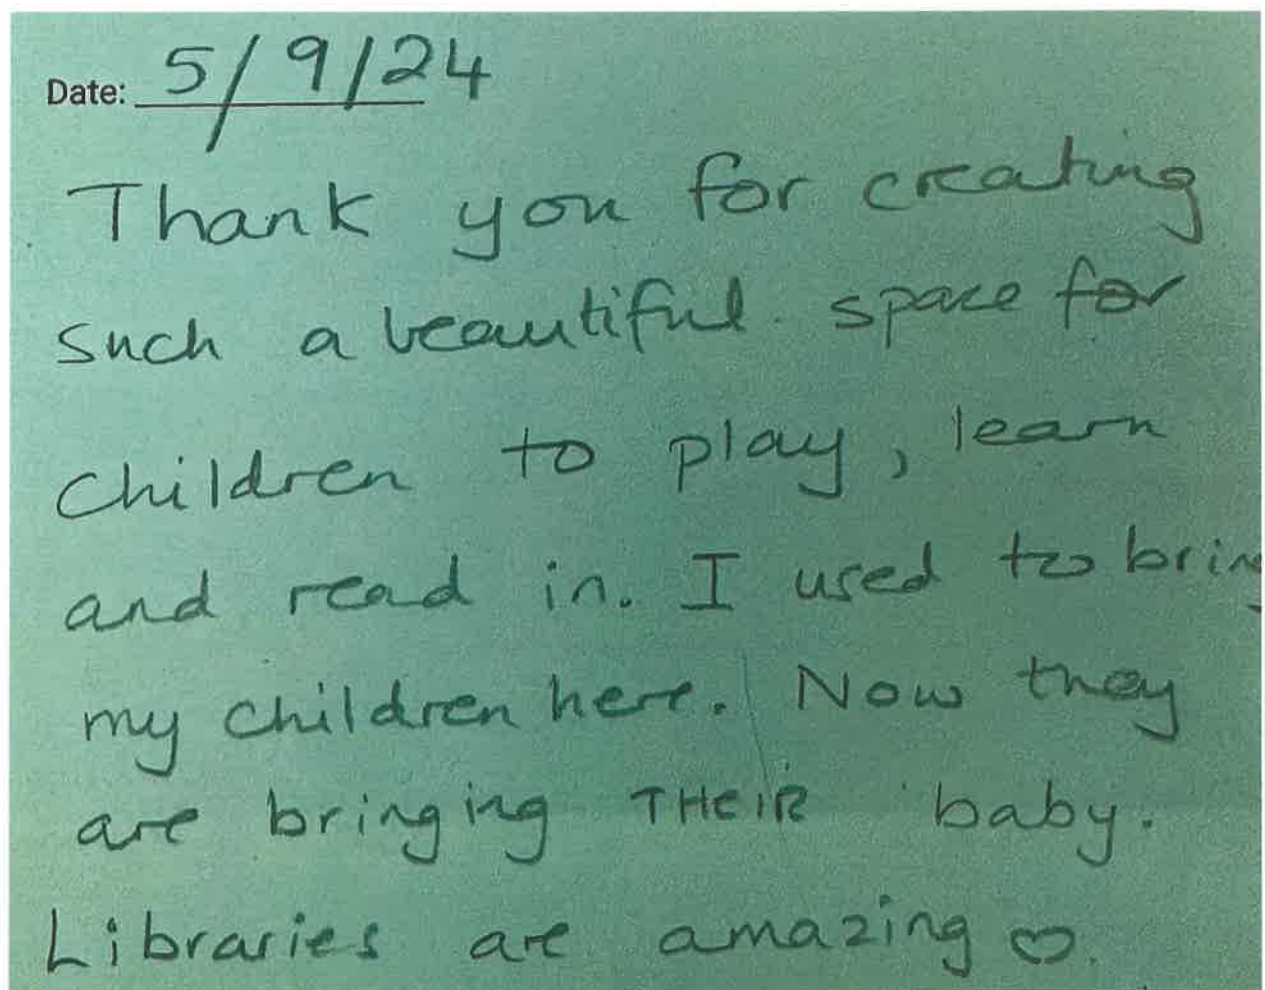 Date: 5/9/24
Thank you for creating
such a beautiful space for
children to play, learn
and read in. I used to bring
my children here. Now they
are bringing THEIR baby.
Libraries are amazing ♡.